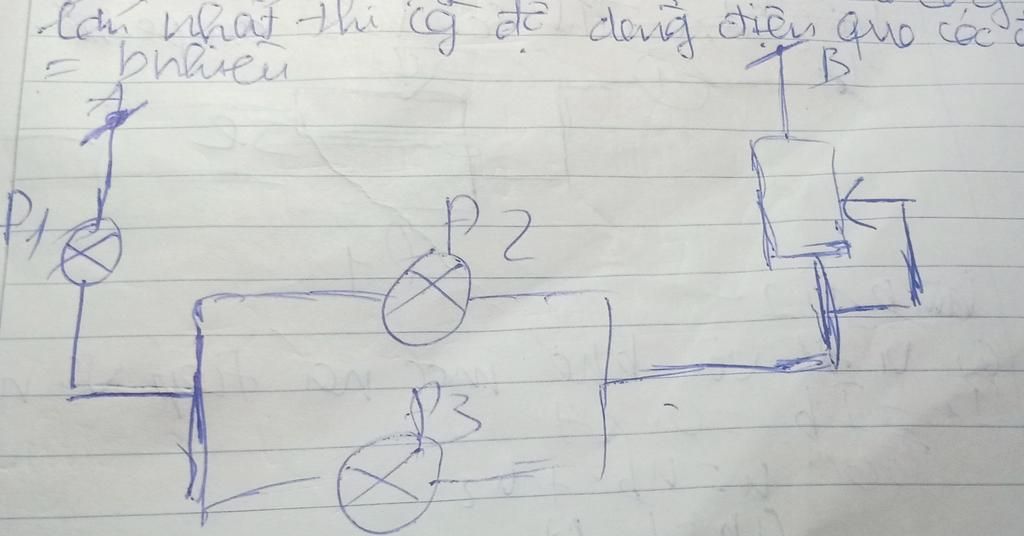 nhất thì cg độ dòng điện qua các
= bnhiêu
A
B
P1
P2
P3